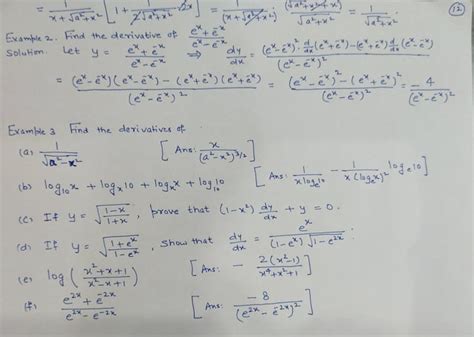 = 1/(x+√(a²+x²)) [1 + 1/(2√(a²+x²)) · 2x] = 1/(x+√(a²+x²)) · (√(a²+x²)+x)/√(a²+x²) = 1/√(a²+x²). (12)
Example 2. Find the derivative of (eˣ+e⁻ˣ)/(eˣ-e⁻ˣ)
Solution. Let y = (eˣ+e⁻ˣ)/(eˣ-e⁻ˣ) ⇒ dy/dx = ((eˣ-e⁻ˣ) d/dx(eˣ+e⁻ˣ) - (eˣ+e⁻ˣ) d/dx(eˣ-e⁻ˣ))/(eˣ-e⁻ˣ)²
= ((eˣ-e⁻ˣ)(eˣ-e⁻ˣ) - (eˣ+e⁻ˣ)(eˣ+e⁻ˣ))/(eˣ-e⁻ˣ)² = ((eˣ-e⁻ˣ)² - (eˣ+e⁻ˣ)²)/(eˣ-e⁻ˣ)² = -4/(eˣ-e⁻ˣ)²
Example 3 Find the derivatives of
(a) 1/√(a²-x²) [Ans: x/(a²-x²)^(3/2)]
(b) log₁₀x + logₓ10 + logₓx + log₁₀10 [Ans: 1/(x logₑ10) - 1/(x(logₑx)²) logₑ10]
(c) If y = √((1-x)/(1+x)), prove that (1-x²) dy/dx + y = 0.
(d) If y = √((1+eˣ)/(1-eˣ)), show that dy/dx = eˣ/((1-eˣ)√(1-e²ˣ))
(e) log((x²+x+1)/(x²-x+1)) [Ans: - 2(x²-1)/(x⁴+x²+1)]
(f) (e²ˣ+e⁻²ˣ)/(e²ˣ-e⁻²ˣ) [Ans: -8/(e²ˣ-e⁻²ˣ)²]